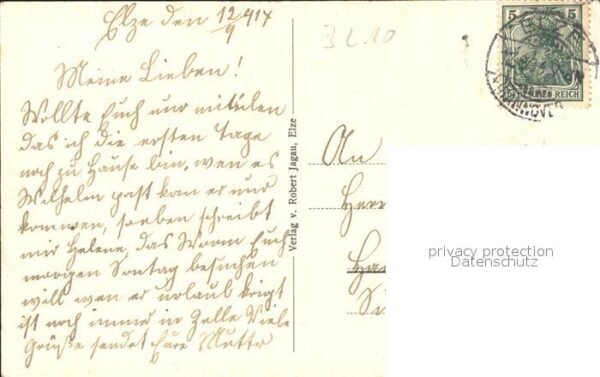 Elze den 12/9 914
Meine Lieben!
Wollte Euch nur mitteilen
das ich die ersten Tage
noch zu Hause bin, wen es
Wilhelm past kan er nur
kommen, soeben schreibt
mir Helene, das Euch
morgen Sontag besuchen
will wen er urlaub krigt
ist noch immer in Zelle Viele
Grüße sendet Eure Mutter
3210
Verlag v. Robert Jagau, Elze
An
Herr
Ha
5
REICH
HANNOVER
privacy protection
Datenschutz